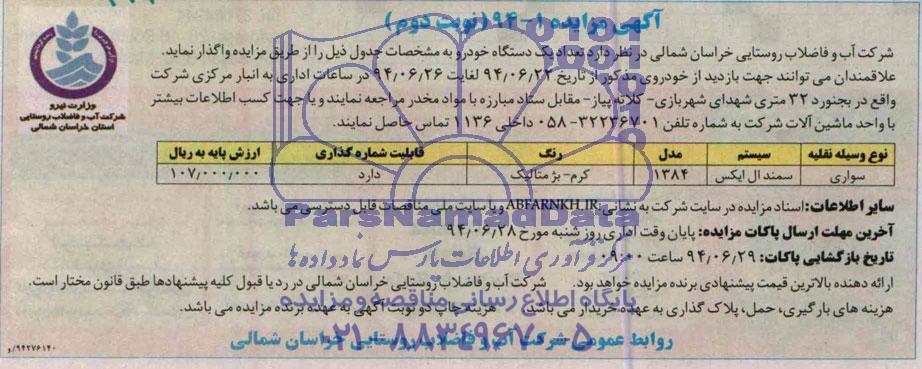 آگهی مزایده ۱-۹۴ (نوبت دوم)
وزارت نیرو
شرکت آب و فاضلاب روستایی
استان خراسان شمالی
شرکت آب و فاضلاب روستایی خراسان شمالی در نظر دارد تعداد یک دستگاه خودرو به مشخصات جدول ذیل را از طریق مزایده واگذار نماید.
علاقمندان می توانند جهت بازدید از خودروی مذکور از تاریخ ۹۴/۰۶/۲۲ لغایت ۹۴/۰۶/۲۶ در ساعات اداری به انبار مرکزی شرکت
واقع در بجنورد ۳۲ متری شهدای شهربازی- کلاته پیاز- مقابل ستاد مبارزه با مواد مخدر مراجعه نمایند و یا جهت کسب اطلاعات بیشتر
با واحد ماشین آلات شرکت به شماره تلفن ۳۲۲۳۶۷۰۱-۰۵۸ داخلی ۱۱۳۶ تماس حاصل نمایند.
نوع وسیله نقلیه سیستم مدل رنگ قابلیت شماره گذاری ارزش پایه به ریال
سواری سمند ال ایکس ۱۳۸۴ کرم- بژ متالیک دارد ۱۰۷/۰۰۰/۰۰۰
سایر اطلاعات: اسناد مزایده در سایت شرکت به نشانی ABFARNKH.IR و یا سایت ملی مناقصات قابل دسترسی می باشد.
آخرین مهلت ارسال پاکات مزایده: پایان وقت اداری روز شنبه مورخ ۹۴/۰۶/۲۸
تاریخ بازگشایی پاکات: ۹۴/۰۶/۲۹ ساعت ۰۹:۰۰
ارائه دهنده بالاترین قیمت پیشنهادی برنده مزایده خواهد بود. شرکت آب و فاضلاب روستایی خراسان شمالی در رد یا قبول کلیه پیشنهادها طبق قانون مختار است.
هزینه های بارگیری، حمل، پلاک گذاری به عهده خریدار می باشد. هزینه چاپ دو نوبت آگهی به عهده برنده مزایده می باشد.
روابط عمومی شرکت آب و فاضلاب روستایی خراسان شمالی
۹۴۲۷۶۱۴۰/و
ParsNamadData
مرکز فرآوری اطلاعات پارس نماد داده ها
پایگاه اطلاع رسانی مناقصه و مزایده
۰۲۱-۸۸۳۴۹۶۷۰-۵